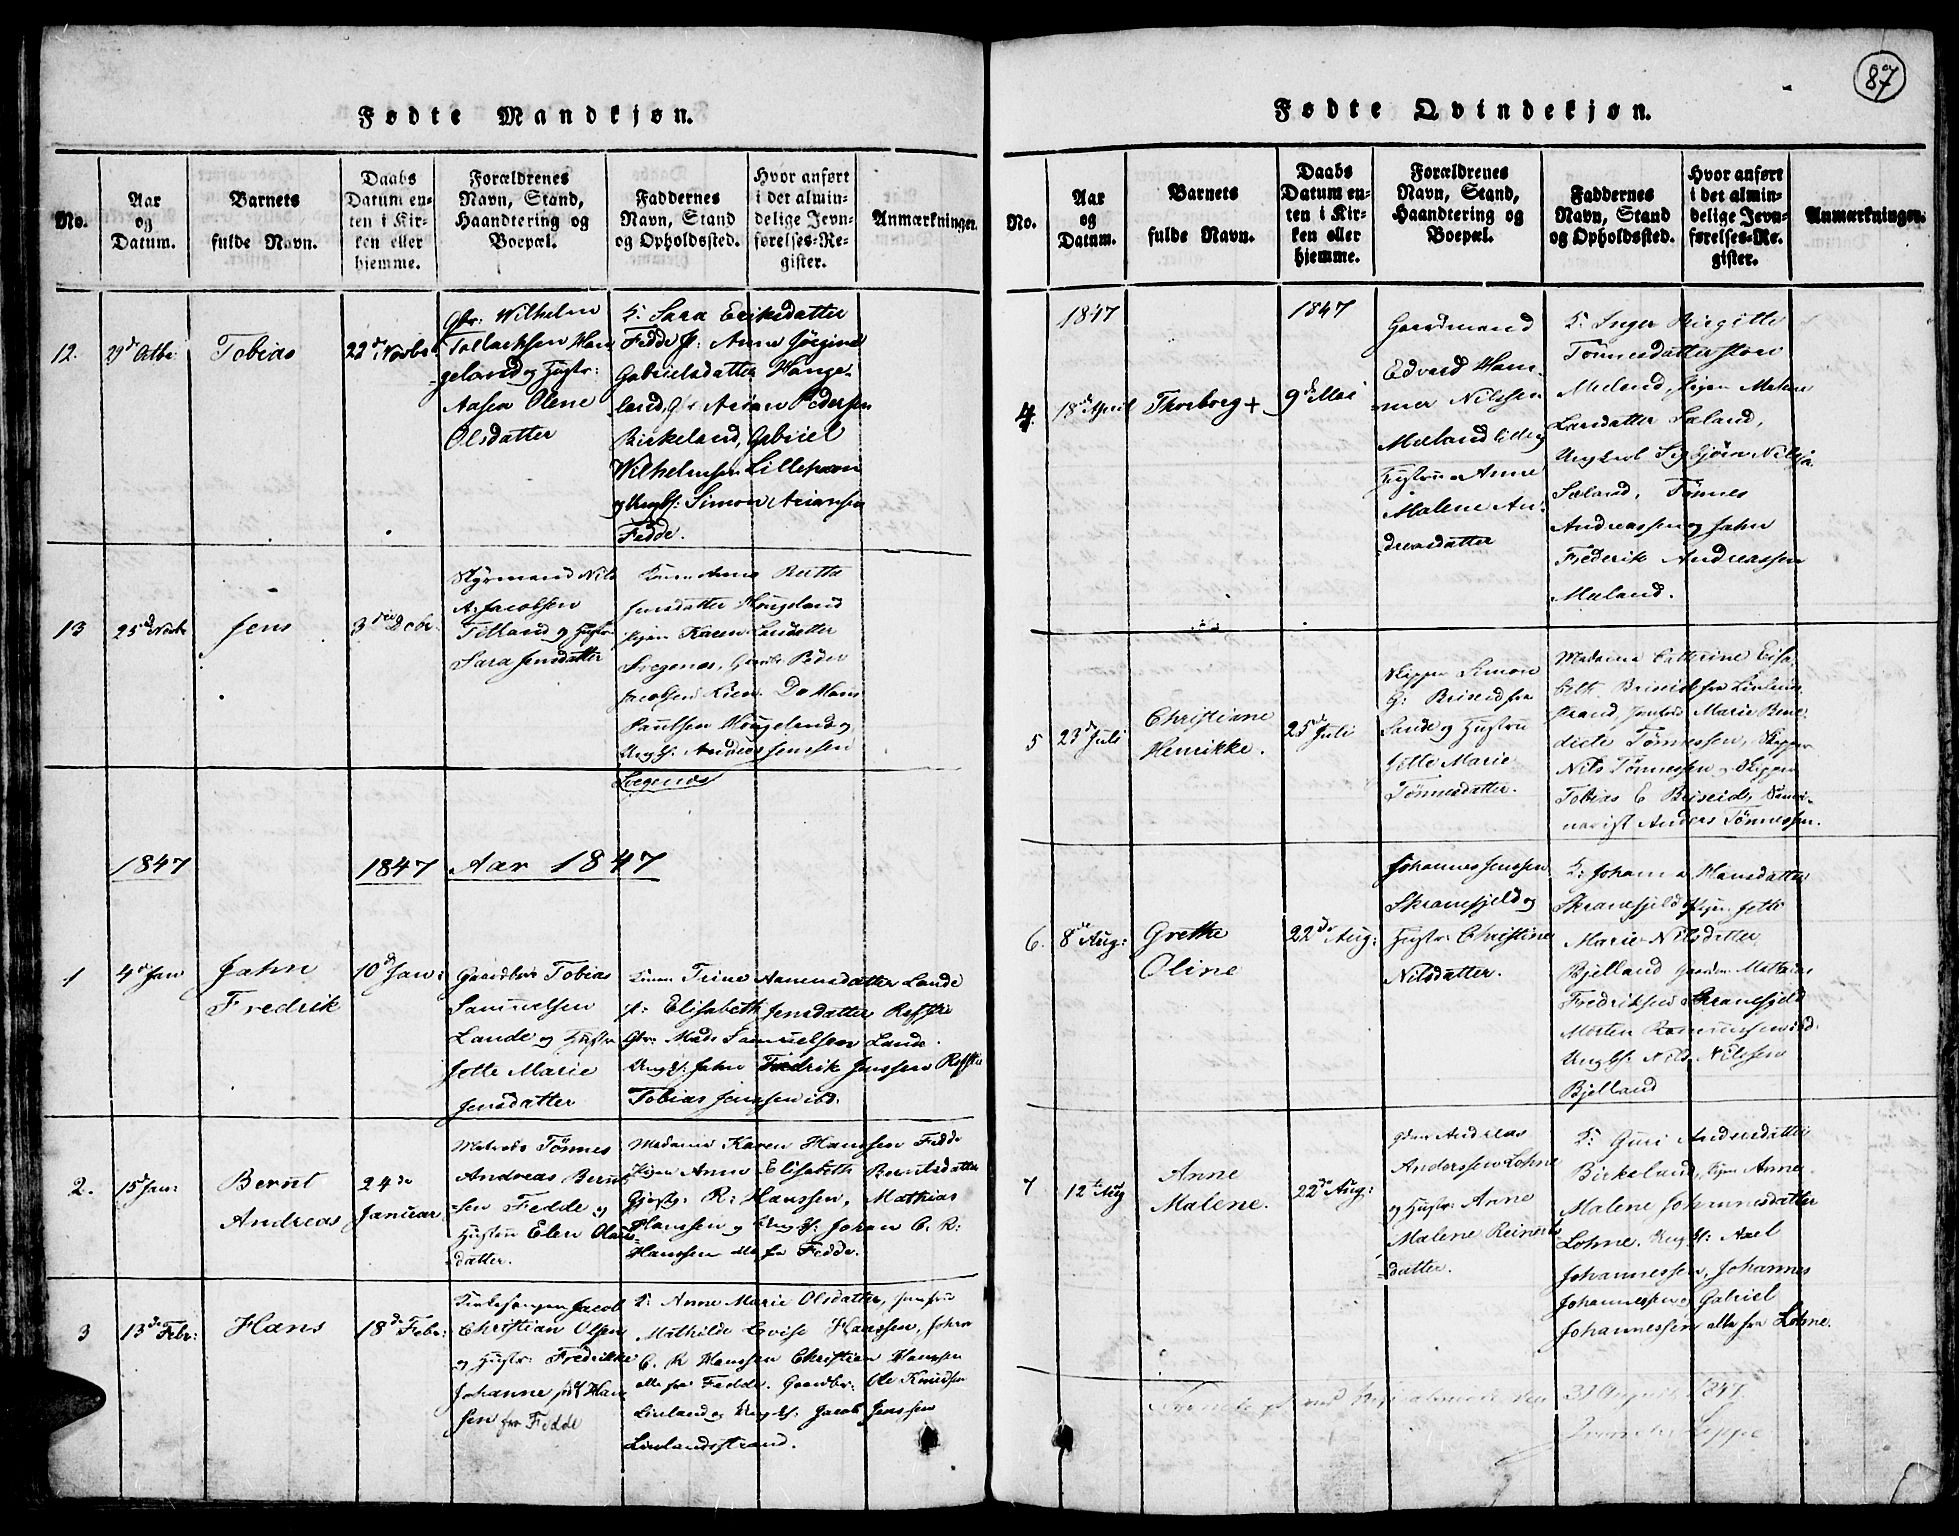 87
Fødte Mandkjøn.
No.
Aar
og
Datum.
Barnets
fulde Navn.
Daabs
Datum en-
ten i Kir-
ken eller
hjemme.
Forældrenes
Navn, Stand,
Haandtering og
Boepæl.
Faddernes
Navn, Stand
og Opholdssted.
Hvor anført
i det almin-
delige Jevn-
førelses-Re-
gister.
Anmærkninger.
12.
29de Octbr
Tobias
22de Novbr
Gbr: Wilhelm
Tollachsen Han
geland og Hustr:
Aasen Olene
Olsdatter
K: Sara Eriksdatter
Fedde p: Anne Jørgine
Gabrielsdatter Hange-
land, Gbr Arian Pedersen
Birkeland, Gabriel
Wilhelmsen
og Ungk: Simon Ariansen
Fedde.
13
25d Novbr
Jens
3die Decbr.
Styrmand Nils
A: Jacobsen
Tilland og Hustr
Sara Jensdatter
Anne Berthe
Jensdatter Hougeland
pigen Karen
Peder
Jacobsen Do Hans
Paulsen Hougeland og
Ungk: Anders Jenssen
1847
1847
Aar 1847
1
4de Jan
Jahn
Fredrik
10d Jan:
Gaardbr: Tobias
Samuelsen
Lande og Hustr
Jette Marie
Jensdatter
Trine Lande
p: Elisabeth Jensdatter
Gbr: Mads Samuelsen Lande.
Ungk: Jahn Fredrik Jenssen
Tobias Jenssen ibd:
2.
15d Jan:
Bernt
Andreas
24de
Januar
Matros Tønnes
Andreas Bernt
sen Fedde og
Hustru Elen Olaus
datter.
Madame Karen Hanssen Fedde
Pigen Anne Elisabeth Berntsdatter
R: Hanssen, Mathias
Hanssen og Ungk: Johan C. R:
Hanssen alle fra Fedde.
3
13de Febr:
Hans
18de Febr:
Jacob
Christian Olsen
og Hustr: Fredrikke
Johanne født Han
sen fra Fedde
K: Anne Marie Olsdatter, Jomfru
Mathilde Lovise Hanssen, Johan
C. R Hanssen Christian Hanssen
alle fra Fedde. Gaardbr: Ole Knudsen
Linland og Ungk: Jacob Jenssen
Linlandsstrand.
Fødte Qvindekjøn.
No.
Aar
og
Datum.
Barnets
fulde Navn.
Daabs
Datum en-
ten i Kir-
ken eller
hjemme.
Forældrenes
Navn, Stand,
Haandtering og
Boepæl.
Faddernes
Navn, Stand
og Opholdssted.
Hvor anført
i det almin-
delige Jevn-
førelses-Re-
gister.
Anmærkninger.
1847
1847
4.
18de April
Thorborg +
9de Mai
Gaardmand
Edvard Ham-
mer Nilssen
Mæland lille og
Hustrue Anne
Malene An-
dreasdatter
K: Inger Birgitte
Tønnesdatter store
Mæland, pigen Malene
Larsdatter Sæland,
Ungkarl Sigbjørn Nilsen
Sæland, Tønnes
Andreassen og Jahn
Frederik Andreassen
Mæland.
5
23de Juli
Christiane
Henrikke.
25de Juli
Skipper Simon
G: Briseid fra
Lande og Hustru
Jette Marie
Tønnesdatter.
Madame Cathrine Elisa-
beth Briseid fra Linlands
strand, Jomfru Marie Bene-
dicte Tønnessen, Skipper
Nils Tønnessen og Skipper
Tobias E Briseid,
Anders Tønnessen.
6.
8de Aug:
Grethe
Oline
22de Aug:
Johannes Jenssen
Skranefjeld og
Hustr: Christine
Nilsdatter.
K: Johanne Hansdatter
Skranefjeld Pigen Jette
Marie Nilsdatter
Bjelland Mathias
Fredriksen Skranefjeld
Morten ibd:
Ungk: Nils Nilssen
Bjelland
7
12te Aug
Anne
Malene.
22de Aug:
Gbr: Andreas
Anderssen Lohne
og Hustr: Anne
Malene Reinerts
datter.
K: Guri Andreasdatter
Birkeland, Pigen Anne
Malene Johannesdatter
Lohne. Ungk: Axel
Johannessen, Johannes
Johannessen og Gabriel
Johannessen alle fra Lohne.
31 August 1847